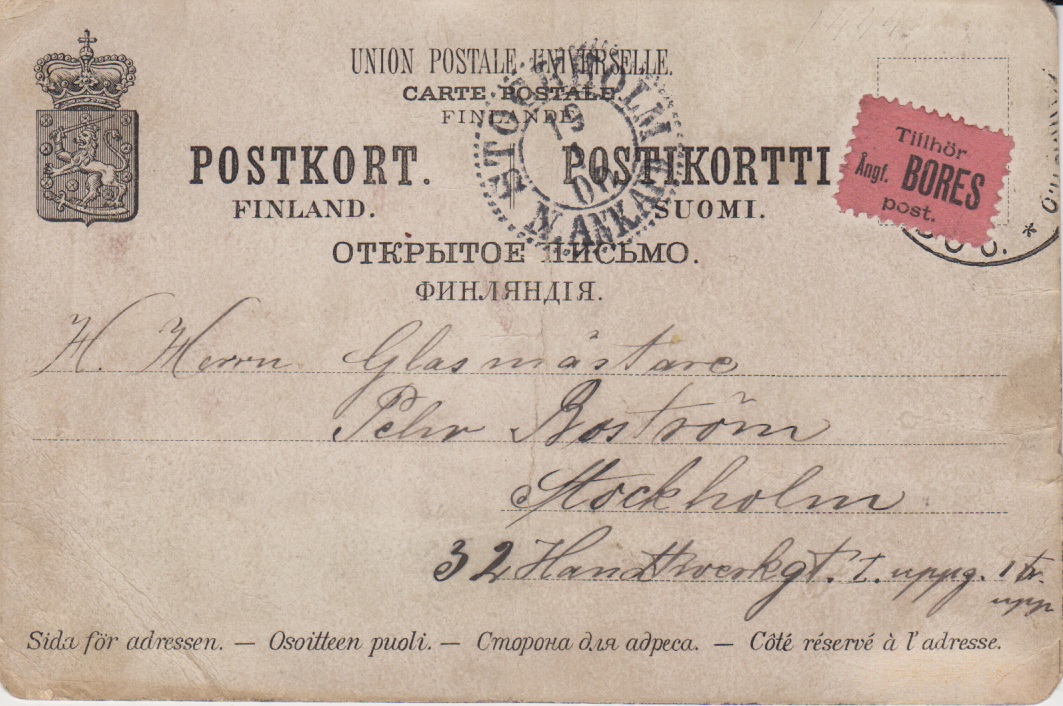 UNION POSTALE UNIVERSELLE.
CARTE POSTALE
FINLANDE
POSTKORT. POSTIKORTTI
FINLAND. SUOMI.
ОТКРЫТОЕ ПИСЬМО.
ФИНЛЯНДІЯ.
STOCKHOLM
19
N. ANK. AVD
Tillhör
Ångf. BORES
post.
H. Herrn Glasmästare
Pehr Boström
Stockholm
32 Handtverkgt. I. uppg. 1 tr.
upp
Sida för adressen. — Osoitteen puoli. — Сторона для адреса. — Côté réservé à l'adresse.